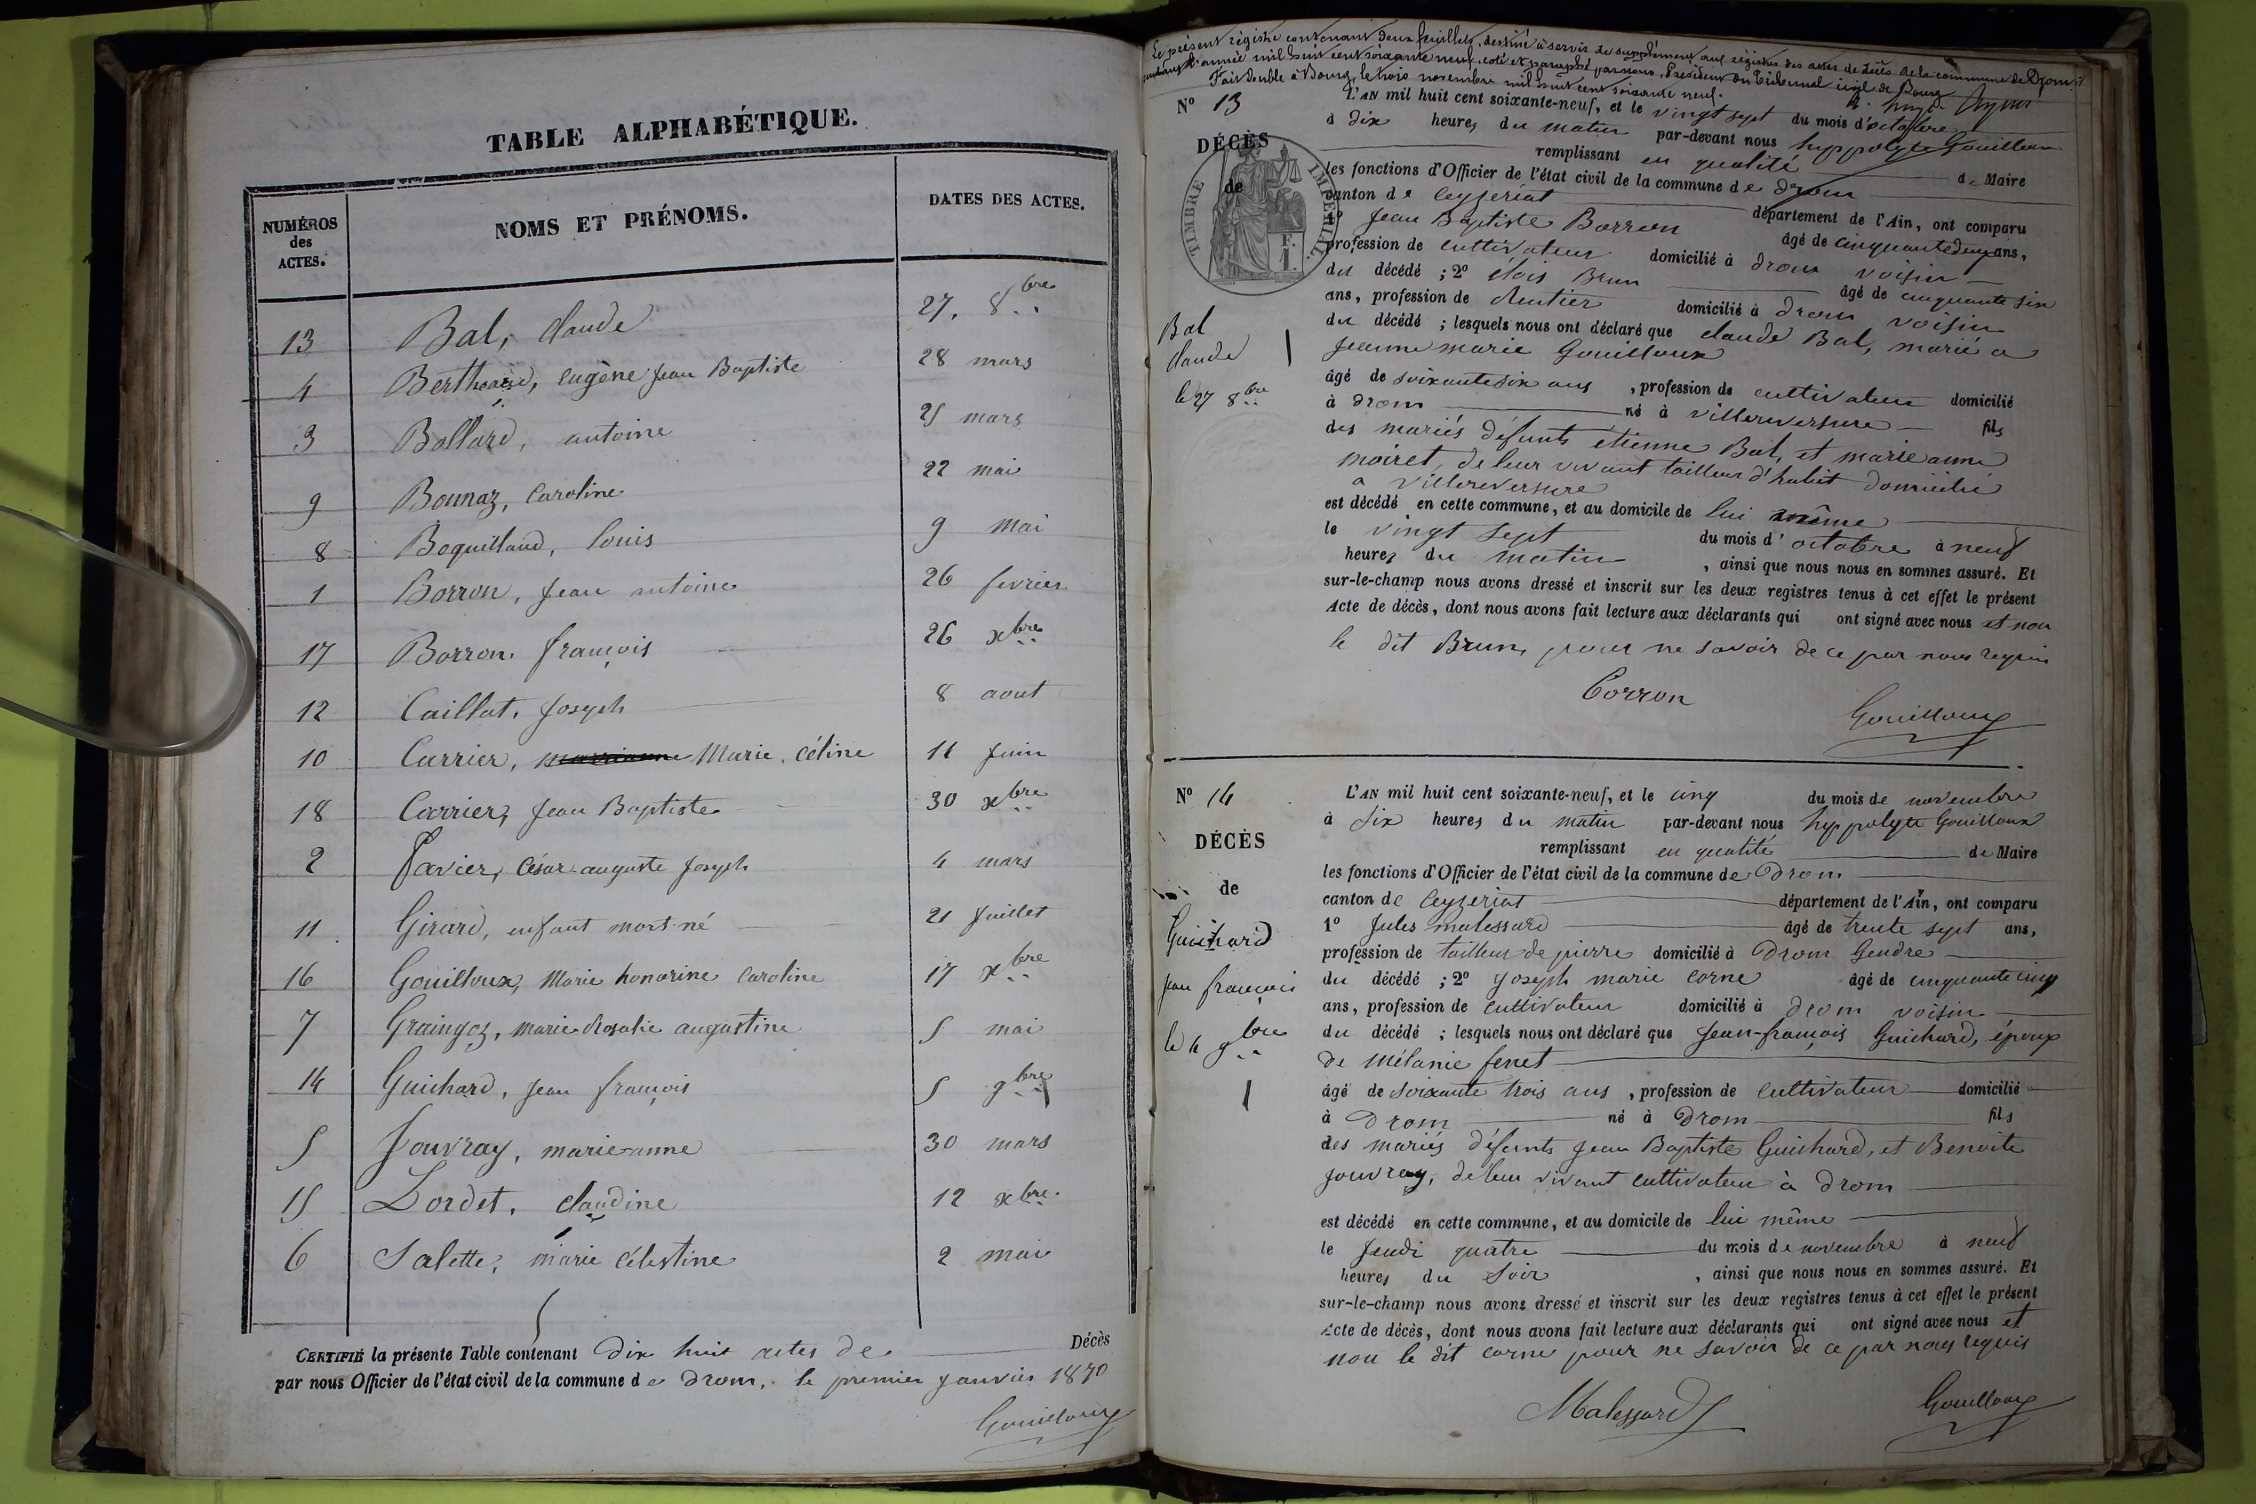 TABLE ALPHABÉTIQUE.
NUMÉROS des ACTES.
NOMS ET PRÉNOMS.
DATES DES ACTES.
13 Bal, claude 27. 8bre
4 Berthoard, eugène jean Baptiste 28 mars
3 Ballard, antoine 25 mars
9 Bonnaz, Caroline 22 mai
8 Boquilland, louis 9 mai
1 Borron, jean antoine 26 fevrier
17 Borron. françois 26 xbre
12 Caillat, joseph 8 aout
10 Carrier, Marie, Céline 11 juin
18 Carrier, jean Baptiste 30 xbre
2 Favier, César auguste joseph 4 mars
11 Girard, enfant mort-né 21 juillet
16 Gouilloux, Marie honorine Caroline 17 xbre
7 Graingoz, marie Rosalie augustine 5 mai
14 Guichard, jean françois 5 9bre
5 Jouvray, marie-anne 30 mars
15 Lordet, claudine 12 xbre.
6 Salette, marie Célestine 2 mai
CERTIFIÉ la présente Table contenant dix huit actes de Décès
par nous Officier de l'état civil de la commune de Drom, le premier janvier 1870
Gouilloux
Le présent régistre contenant deux feuillets, destiné à servir de supplément aux régistres des actes de décès de la commune de Drom
pendant l'année mil huit cent soixante neuf, coté et paraphé par nous, Président du Tribunal civil de Bourg
Fait double à Bourg, le trois novembre mil huit cent soixante neuf.
N° 13
DÉCÈS
de
TIMBRE IMPÉRIAL
F.
1.
Bal
claude
le 27 8bre
L'AN mil huit cent soixante-neuf, et le vingt sept du mois d'octobre
à dix heures du matin par-devant nous hyppolyte Gouilloux
remplissant en qualité de Maire
les fonctions d'Officier de l'état civil de la commune de drom
canton de Ceyzeriat département de l'Ain, ont comparu
1° jean Baptiste Borron âgé de cinquante deux ans,
profession de cultivateur domicilié à drom voisin
du décédé ; 2° eloïs Brun âgé de cinquante six
ans, profession de Rentier domicilié à drom voisin
du décédé ; lesquels nous ont déclaré que claude Bal, marié a
jeanne marie Gouilloux
âgé de soixante six ans , profession de cultivateur domicilié
à drom né à villereversure fils
des mariés défunts etienne Bal, et marie anne
moiret, de leur vivant tailleur d'habit domicilié
a villereversure
est décédé en cette commune, et au domicile de lui même
le vingt sept du mois d'octobre à neuf
heures du matin , ainsi que nous nous en sommes assuré. Et
sur-le-champ nous avons dressé et inscrit sur les deux registres tenus à cet effet le présent
Acte de décès, dont nous avons fait lecture aux déclarants qui ont signé avec nous et non
le dit Brun, pour ne savoir de ce par nous requis
Borron
Gouilloux
N° 14
DÉCÈS
de
Guichard
jean françois
le 4 9bre
L'AN mil huit cent soixante-neuf, et le cinq du mois de novembre
à dix heures du matin par-devant nous hyppolyte Gouilloux
remplissant en qualité de Maire
les fonctions d'Officier de l'état civil de la commune de Drom
canton de Ceyzeriat département de l'Ain, ont comparu
1° Jules malessard âgé de trente sept ans,
profession de tailleur de pierre domicilié à Drom Gendre
du décédé ; 2° joseph marie corne âgé de cinquante cinq
ans, profession de cultivateur domicilié à drom voisin
du décédé ; lesquels nous ont déclaré que jean-françois Guichard, époux
de mélanie fenet
âgé de soixante trois ans , profession de cultivateur domicilié
à Drom né à Drom fils
des mariés défunts jean Baptiste Guichard, et Benoite
jouvray, de leur vivant cultivateur à drom
est décédé en cette commune, et au domicile de lui même
le jeudi quatre du mois de novembre à neuf
heures du soir , ainsi que nous nous en sommes assuré. Et
sur-le-champ nous avons dressé et inscrit sur les deux registres tenus à cet effet le présent
Acte de décès, dont nous avons fait lecture aux déclarants qui ont signé avec nous et
non le dit corne pour ne savoir de ce par nous requis
Malessard
Gouilloux